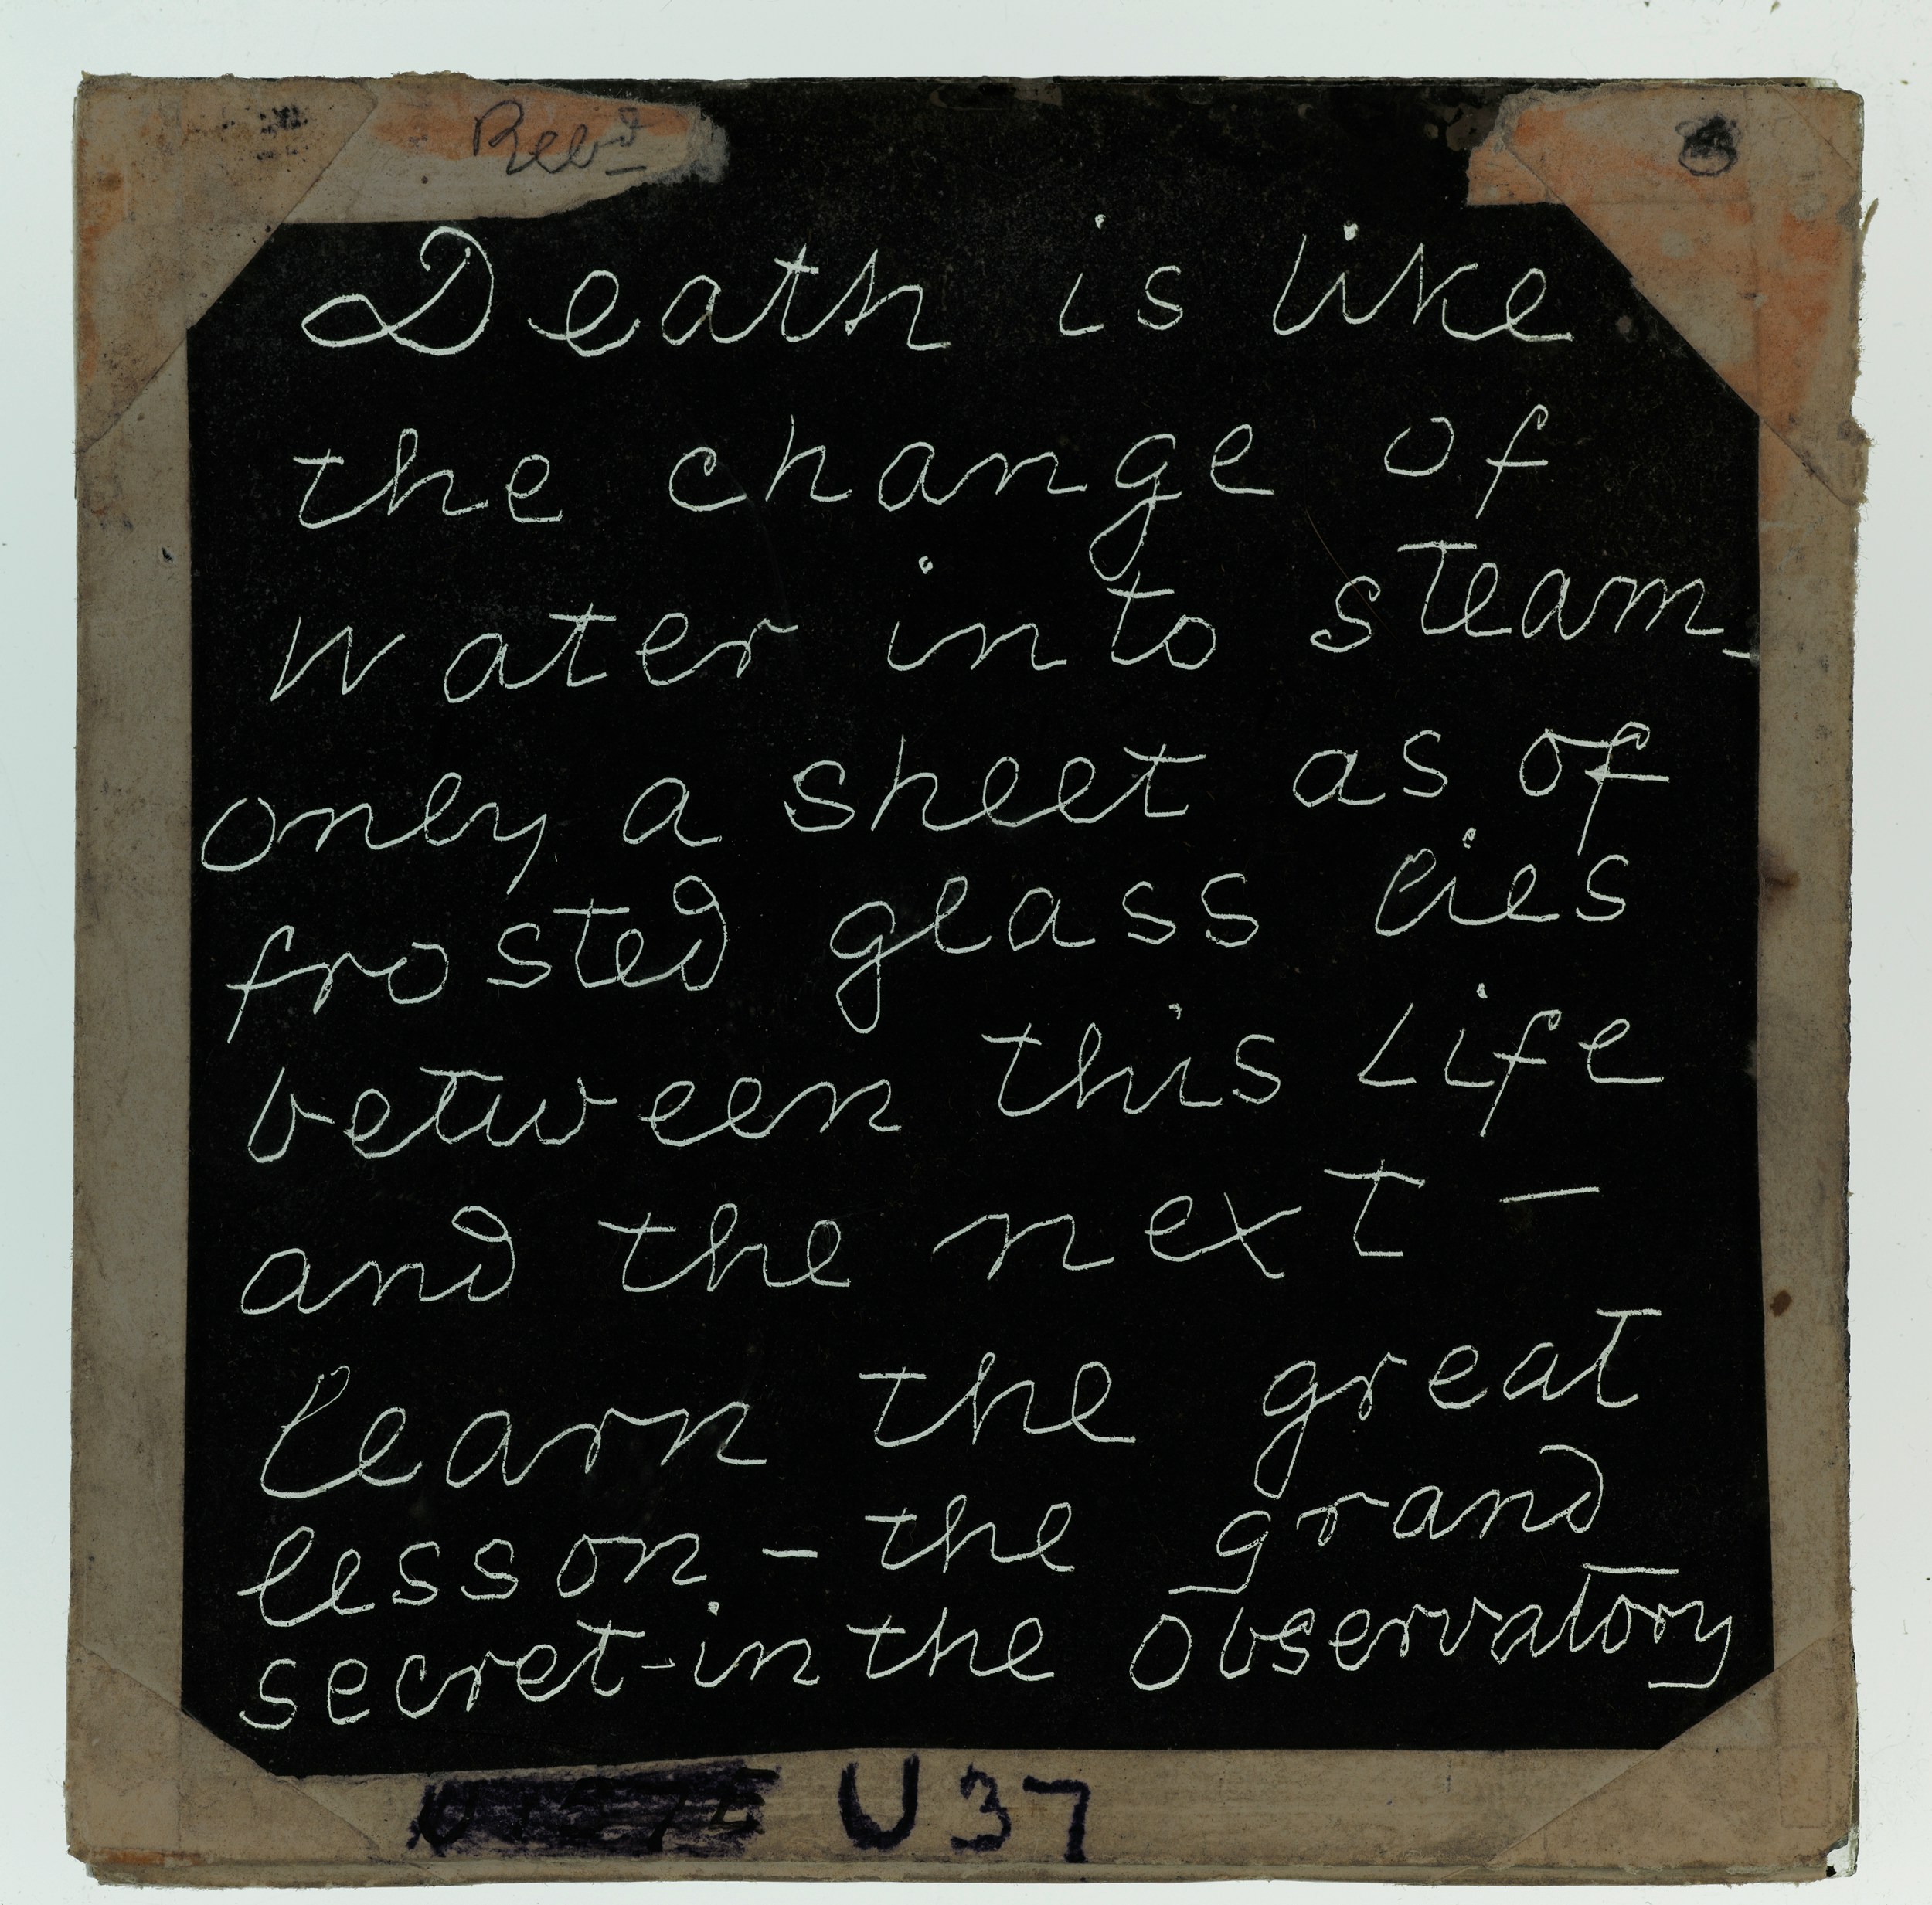 Death is like
the change of
water into steam -
only a sheet as of
frosted glass lies
between this Life
and the next -
learn the great
lesson - the grand
secret - in the Observatory
U 37